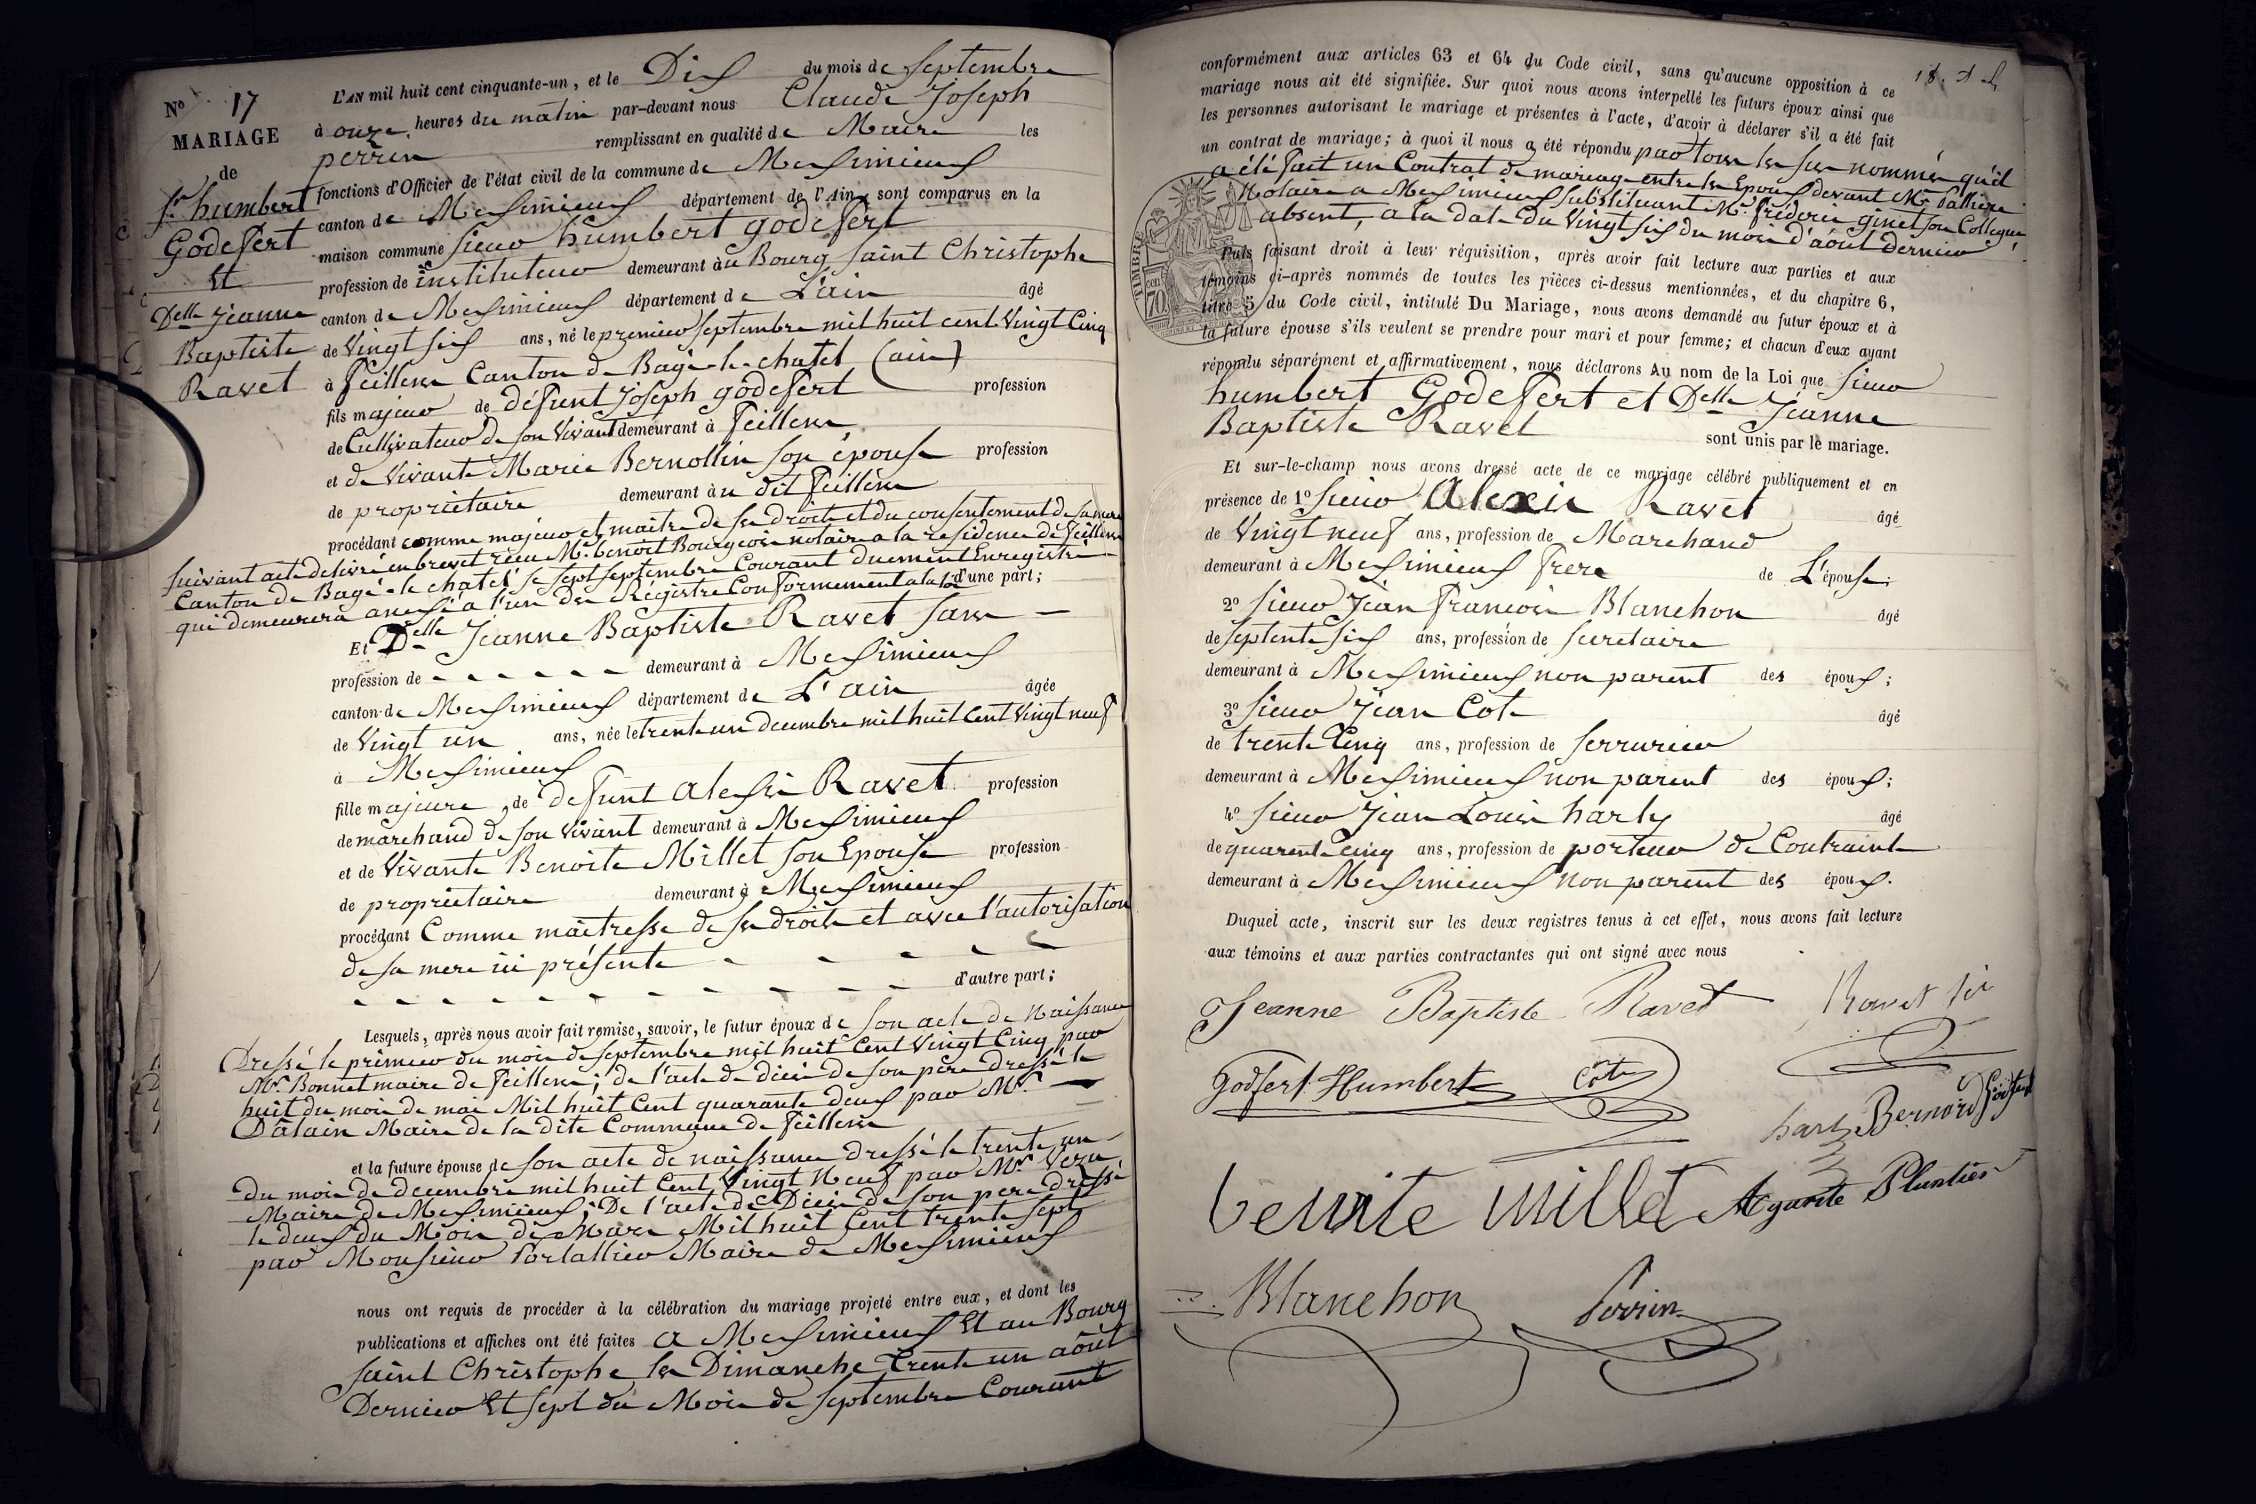 N° 17
MARIAGE
de
Sr. humbert
Godefert
Et
Delle Jeanne
Baptiste
Ravet
L'AN mil huit cent cinquante-un, et le Dix du mois de septembre
à onze heures du matin par-devant nous Claude Joseph
perrin remplissant en qualité de Maire les
fonctions d'Officier de l'état civil de la commune de Meximieux
canton de Meximieux département de l'Ain, sont comparus en la
maison commune sieur humbert godefert
profession de instituteur demeurant au Bourg saint Christophe
canton de Meximieux département de L'ain âgé
de Vingt six ans, né le premier septembre mil huit cent Vingt Cinq
à feillens Canton de Bagé-le-chatel (ain)
fils majeur de défunt Joseph godefert profession
de Cultivateur de son Vivant demeurant à feillens
et de Vivante Marie Bernollin son épouse profession
de propriétaire demeurant au dit feillens
procédant comme majeur et maitre de ses droits et du consentement de sa mere
suivant acte délivré en brevet reçu Me. benoit Bourgeois notaire a la residence de feillens
Canton de Bagé-le-chatel le sept septembre Courant duement Enregistré
qui demeurera annexé a l'un des Régistres Conformement a la loi d'une part;
Et Delle Jeanne Baptiste Ravet sans
profession de demeurant à Meximieux
canton de Meximieux département de L'ain âgée
de Vingt un ans, née le trente un decembre mil huit Cent Vingt neuf
à Meximieux
fille majeure de defunt alexis Ravet profession
de marchand de son vivant demeurant à Meximieux
et de Vivante Benoite Millet son Epouse profession
de propriétaire demeurant à Meximieux
procédant Comme maitresse de ses droits et avec l'autorisation
de sa mere ici présente
d'autre part;
Lesquels, après nous avoir fait remise, savoir, le futur époux de son acte de Naissance
Dressé le premier du mois de septembre mil huit Cent Vingt Cinq par
Mr. Bonnet maire de feillens; de l'acte de décès de son père dressé le
huit du mois de mai Mil huit Cent quarante deux par Mr.
Dalain Maire de la dite Commune de feillens
et la future épouse de son acte de naissance dressé le trente un
du mois de decembre mil huit Cent Vingt Neuf par Mr.
Maire de Meximieux; De l'acte de Décès de son pere dressé
le deux du Mois de Mars Mil huit Cent trente sept
par Monsieur Portallier Maire de Meximieux
nous ont requis de procéder à la célébration du mariage projeté entre eux, et dont les
publications et affiches ont été faites a Meximieux Et au Bourg
saint Christophe les Dimanche trente un août
Dernier Et sept du Mois de septembre Courant
conformément aux articles 63 et 64 du Code civil, sans qu'aucune opposition à ce
mariage nous ait été signifiée. Sur quoi nous avons interpellé les futurs époux ainsi que
les personnes autorisant le mariage et présentes à l'acte, d'avoir à déclarer s'il a été fait
un contrat de mariage; à quoi il nous a été répondu par tous les sus nommés qu'il
a été fait un Contrat de mariage entre les Epoux devant Me. Pallière
Notaire a Meximieux substituant Me. fréderic ginet son Collegue
absent, a la date du Vingt six du mois d'août dernier
Puis faisant droit à leur réquisition, après avoir fait lecture aux parties et aux
témoins ci-après nommés de toutes les pièces ci-dessus mentionnées, et du chapitre 6,
titre 5 du Code civil, intitulé Du Mariage, nous avons demandé au futur époux et à
la future épouse s'ils veulent se prendre pour mari et pour femme; et chacun d'eux ayant
répondu séparément et affirmativement, nous déclarons Au nom de la Loi que sieur
humbert Godefert et Delle Jeanne
Baptiste Ravet sont unis par le mariage.
Et sur-le-champ nous avons dressé acte de ce mariage célébré publiquement et en
présence de 1° sieur Alexis Ravet âgé
de Vingt neuf ans, profession de Marchand
demeurant à Meximieux frere de L'épouse;
2° sieur Jean francois Blanchon âgé
de septente six ans, profession de secretaire
demeurant à Meximieux non parent des époux;
3° sieur Jean Cote âgé
de trente Cinq ans, profession de serrurier
demeurant à Meximieux non parent des époux;
4° sieur Jean Louis harly âgé
de quarente cinq ans, profession de porteur de Contrainte
demeurant à Meximieux non parent des époux.
Duquel acte, inscrit sur les deux registres tenus à cet effet, nous avons fait lecture
aux témoins et aux parties contractantes qui ont signé avec nous
Jeanne Baptiste Ravet Ravet
Godfert Humbert Cote
harly Bernard
benoite millet Agarite Plantier
Blanchon Perrin
TIMBRE
70